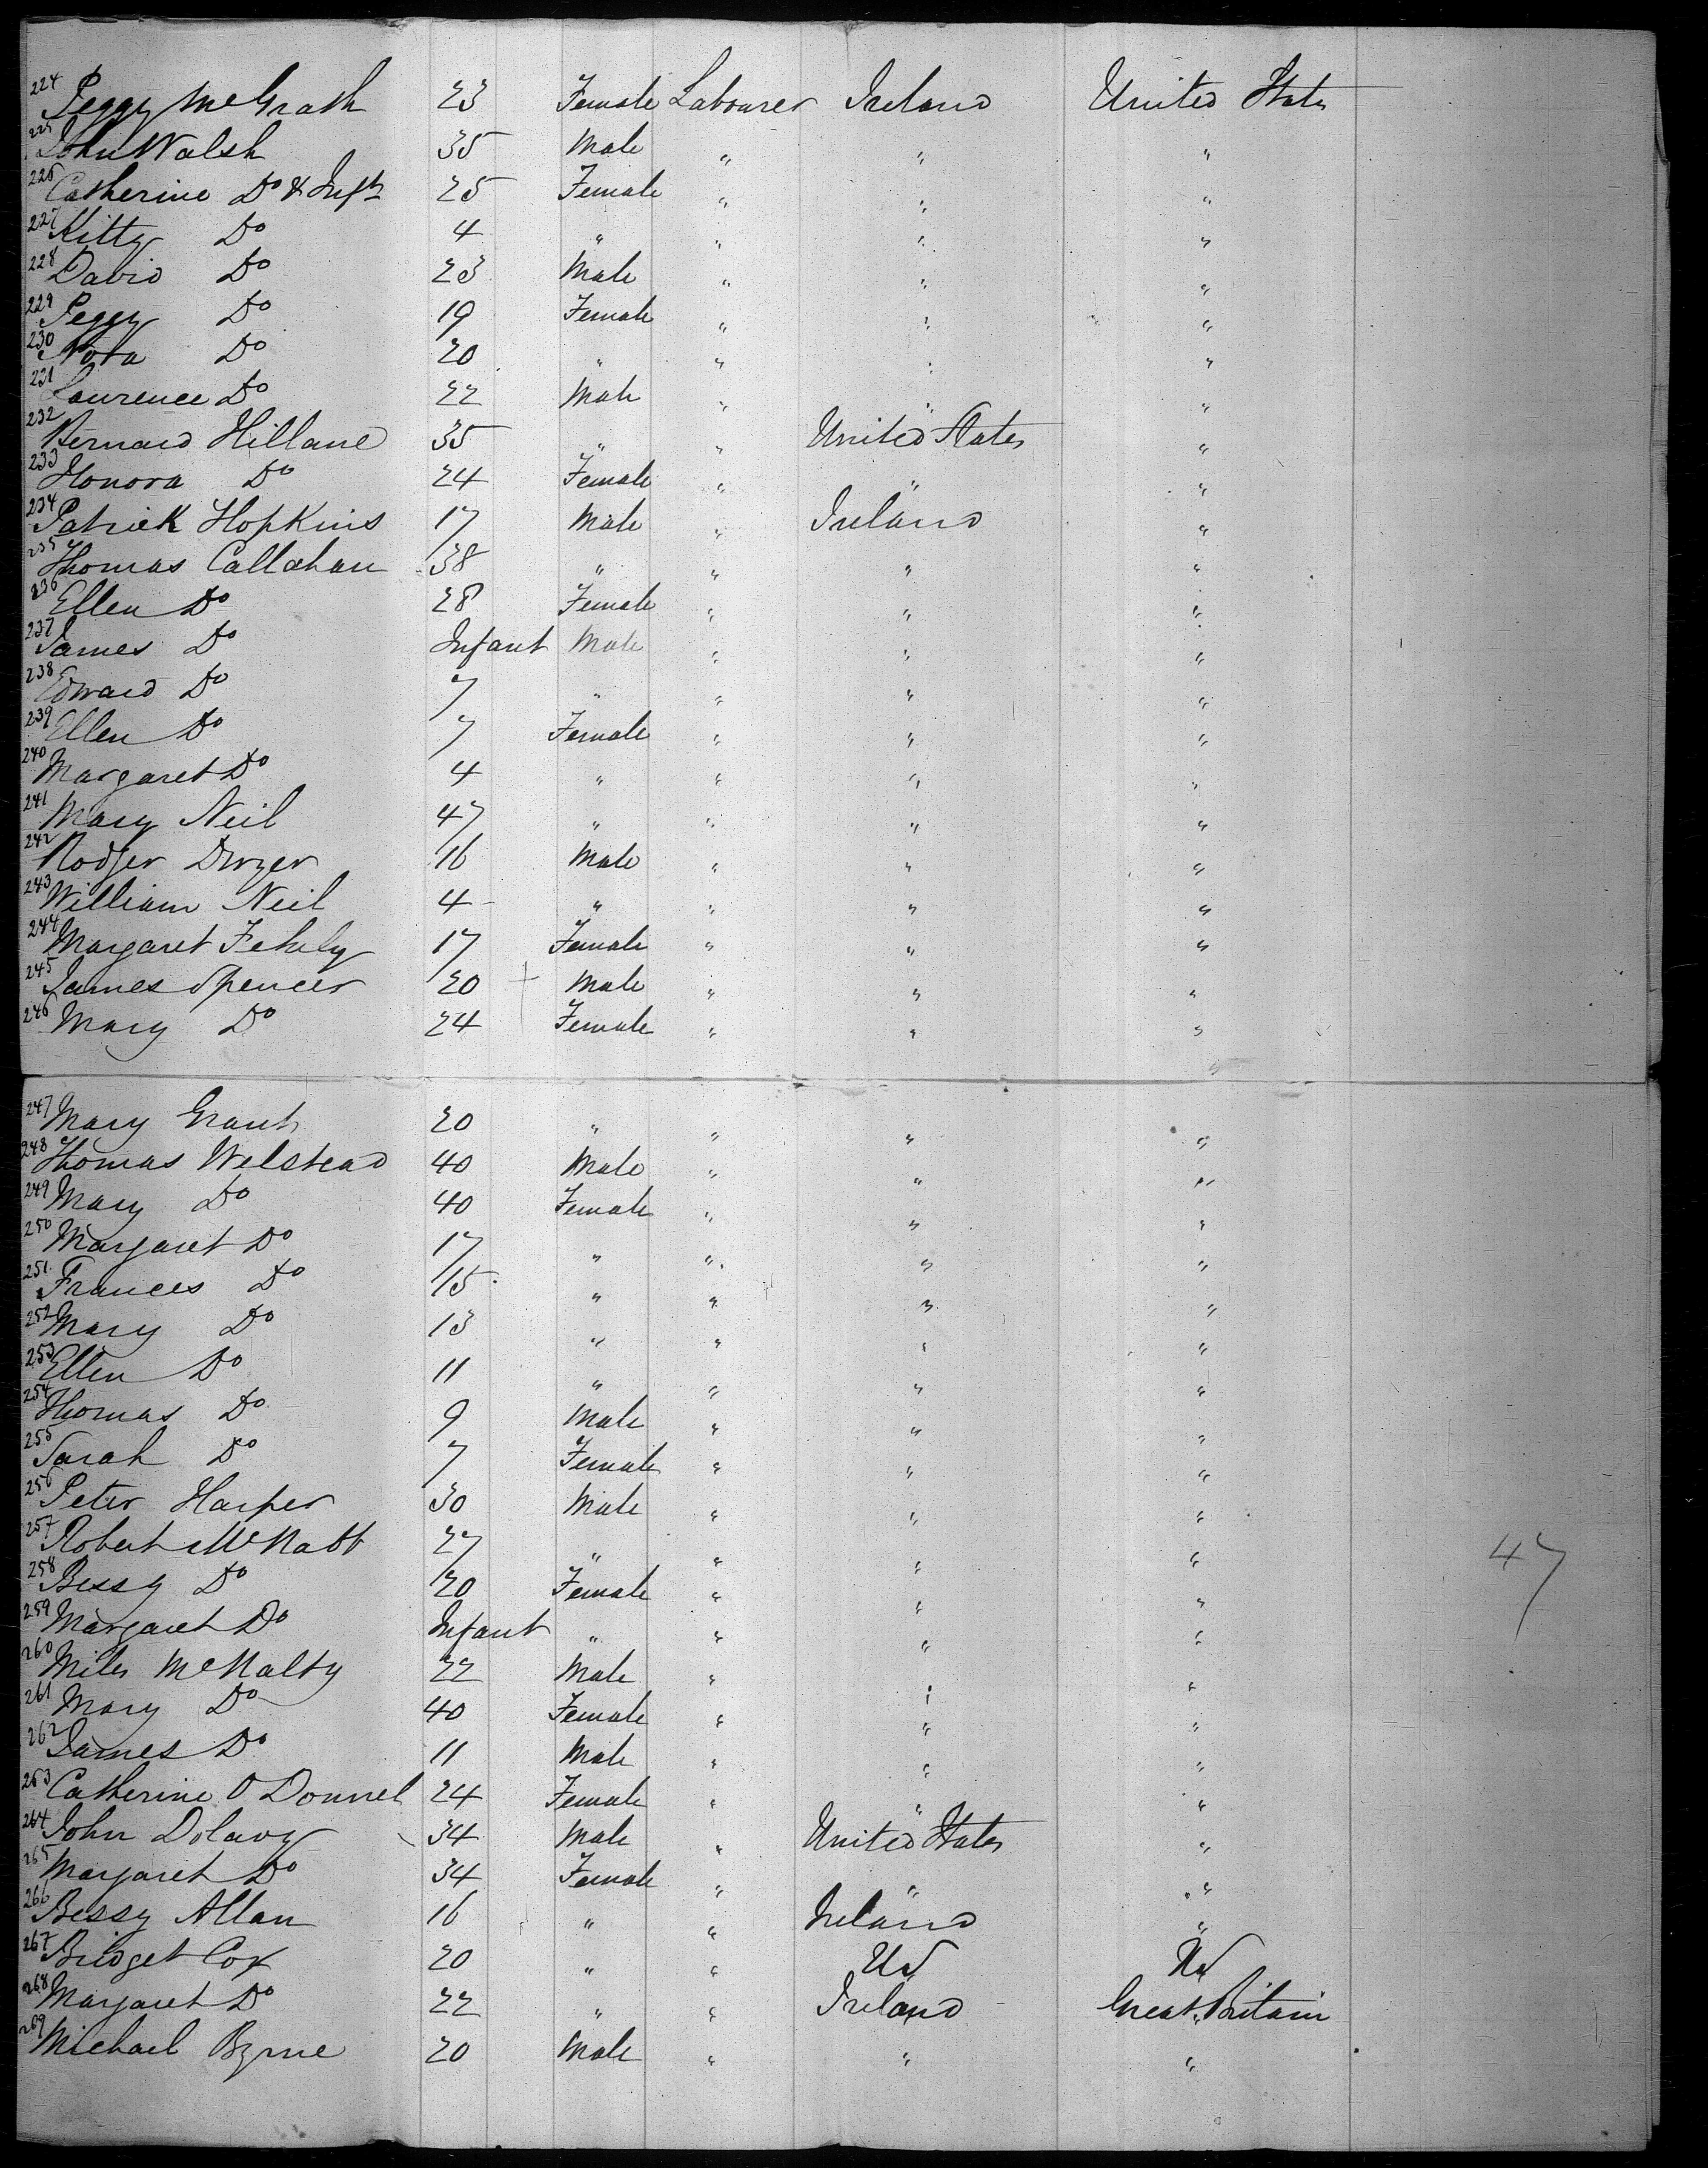 224 Peggy McGrath 23 Female Labourer Ireland United States
225 John Walsh 35 Male " " "
226 Catherine Do & Inft 25 Female " " "
227 Kitty Do 4 " " " "
228 David Do 23 Male " " "
229 Peggy Do 19 Female " " "
230 Nora Do 20 " " " "
231 Laurence Do 22 Male " " "
232 Bernard Hillane 35 " " United States "
233 Honora Do 24 Female " " "
234 Patrick Hopkins 17 Male " Ireland "
235 Thomas Callahan 38 " " " "
236 Ellen Do 28 Female " " "
237 James Do Infant Male " " "
238 Edward Do 7 " " " "
239 Ellen Do 7 Female " " "
240 Margaret Do 4 " " " "
241 Mary Neil 47 " " " "
242 Rodger Dwyer 16 Male " " "
243 William Neil 4 " " " "
244 Margaret Fehaly 17 Female " " "
245 James Spencer 20 Male " " "
246 Mary Do 24 Female " " "
247 Mary Grant 20 " " " "
248 Thomas Welstead 40 Male " " "
249 Mary Do 40 Female " " "
250 Margaret Do 17 " " " "
251 Frances Do 15 " " " "
252 Mary Do 13 " " " "
253 Ellen Do 11 " " " "
254 Thomas Do 9 Male " " "
255 Sarah Do 7 Female " " "
256 Peter Harper 30 Male " " "
257 Robert McNabb 27 " " " "
47
258 Bessy Do 20 Female " " "
259 Margaret Do Infant " " " "
260 Miles McNalty 22 Male " " "
261 Mary Do 40 Female " " "
262 James Do 11 Male " " "
263 Catherine O Donnel 24 Female " " "
264 John Dolavy 34 Male " United States "
265 Margaret Do 34 Female " " "
266 Bessy Allan 16 " " Ireland "
267 Bridget Cox 20 " " US US
268 Margaret Do 22 " " Ireland Great Britain
269 Michael Byrne 20 Male " " "